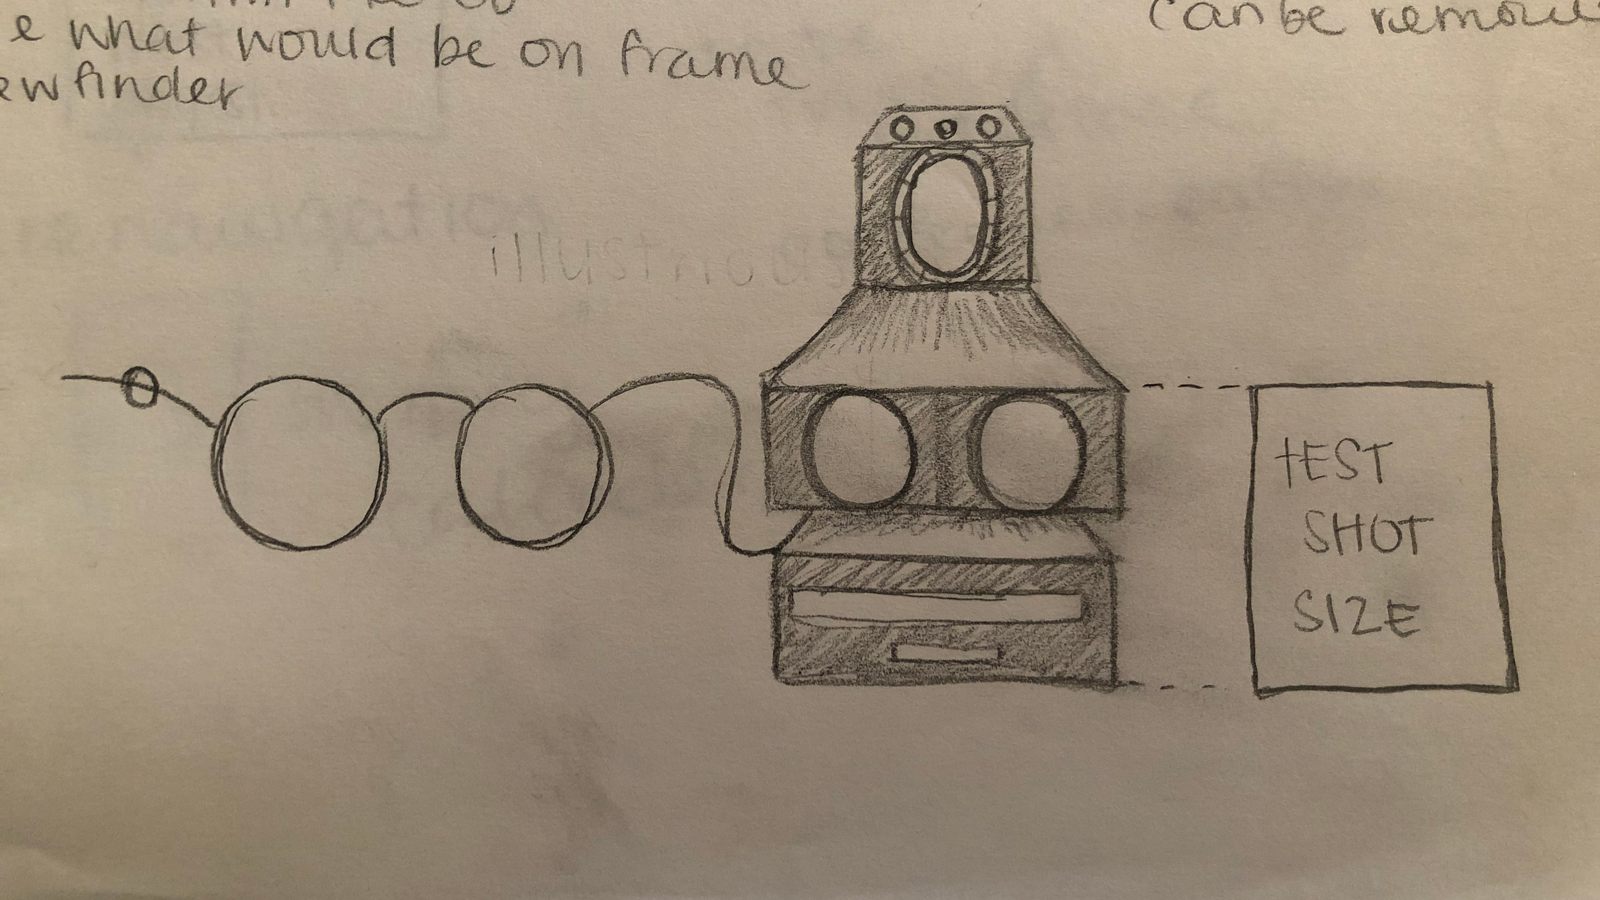 e what would be on frame
ewfinder
can be remove
illustrious
tEST
SHOT
SIZE